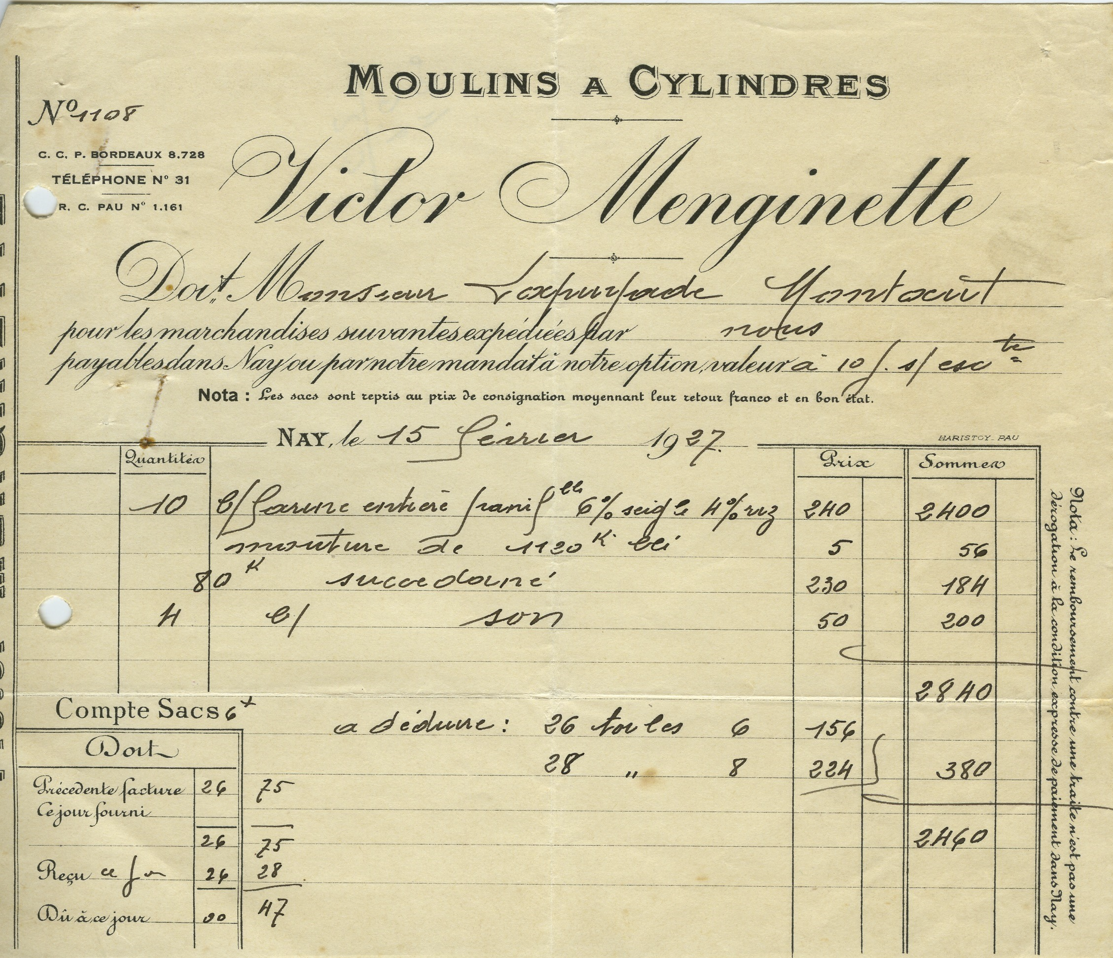 MOULINS A CYLINDRES
Nº 1108
C. C. P. BORDEAUX 8.728
TÉLÉPHONE Nº 31
R. C. PAU Nº 1.161
Victor Menginette
Doit Monsieur Lapuyade Montaut
pour les marchandises suivantes expédiées par nous
payables dans Nay ou par notre mandat à notre option, valeur à 10 j. s/ escte
Nota : Les sacs sont repris au prix de consignation moyennant leur retour franco et en bon état.
NAY, le 15 février 1927.
HARISTOY. PAU
Quantités Prix Sommes
10 b/ farine entière 6% seigle 4% riz 240 2400
mouture de 1120 K blé 5 56
80 K succedané 230 184
4 b/ son 50 200
2840
Compte Sacs 6
a déduire : 26 toiles 6 156
28 " 8 224 380
Doit
Précédente facture 26 75
Ce jour fourni
26 75
2460
Reçu ce jr 26 28
Dû à ce jour 00 47
Nota : Le remboursement contre une traite n'est pas une
dérogation à la condition expresse de paiement dans Nay.